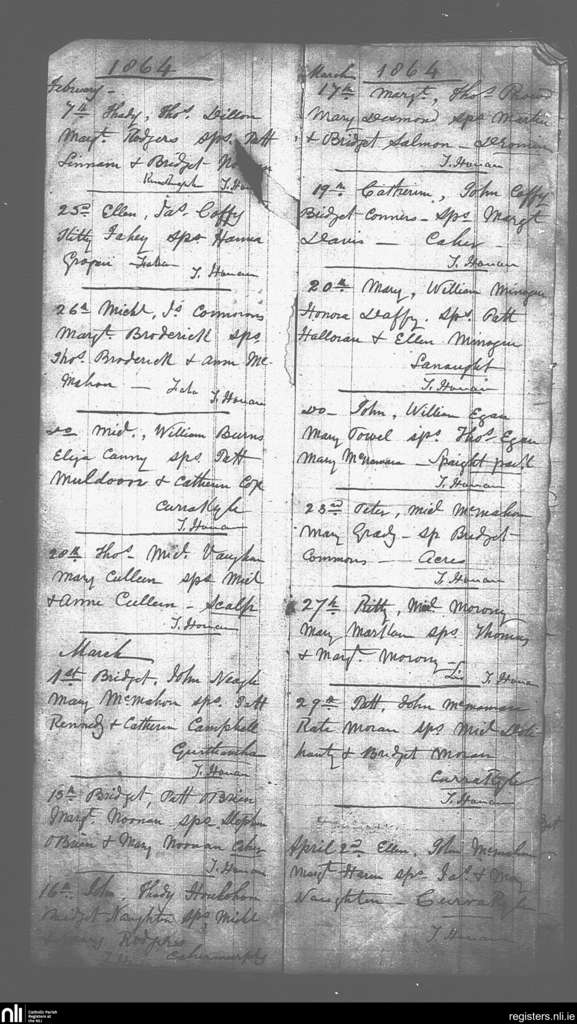 1864
February -
7th Thady, Thos. Dillon
Margt. Rodgers sps. Patt
Linnane & Bridget
T. Honan
25th Ellen, Jas. Coffy
Kitty Fahey sps Hanna
T. Honan
26th Michl, Js Commons
Margt. Broderick sps
Thos. Broderick & Anne Mc
Mahon —
T. Honan
do Mid., William Burns
Eliza Canny sps Patt
Muldoon & Catherin Cox
CurraKyle
T. Honan
28th Thos. Mid. Vaughan
Mary Cullen sps Mid
& Anne Cullen - Scalp
T. Honan
March
1st Bridget, John Neagle
Mary McMahon sps. Patt
Kennedy & Catherin Campbell
T. Honan
13th Bridget, Patt OBrien
Margt. Noonan sps Stephen
OBrien & Mary Noonan Caher
T. Honan
16th John, Thady Houlohan
Bridget Naughton sps Michl
Rodgers
Cahermurphy
March 1864
17th Margt., Thos.
Mary Desmond sps Martin
& Bridget Salmon -
T. Honan
19th Catherin, John Coffy
Bridget Conners - sps Margt
Davis — Caher
T. Honan
20th Mary, William Minogue
Honora Daffy. sps. Patt
Halloran & Ellen Minogue
T. Honan
do - John, William Egan
Mary Powel sps. Thos. Egan
Mary McNamara -
T. Honan
23rd Peter, Mid McMahon
Mary Grady - sp Bridget
Commons — Acres
T. Honan
27th Kitty, Mid Morony
Mary sps. Thomas
& Margt. Morony -
T. Honan
29th Patt, John McNamara
Kate Moran sps Mid
& Bridget Moran
CurraKyle
T. Honan
April 2nd Ellen, John McMahon
Margt Haren sps Jas. & Mary
Naughton - CurraKyle
T. Honan
nli
Catholic Parish
Registers at
the NLI
registers.nli.ie